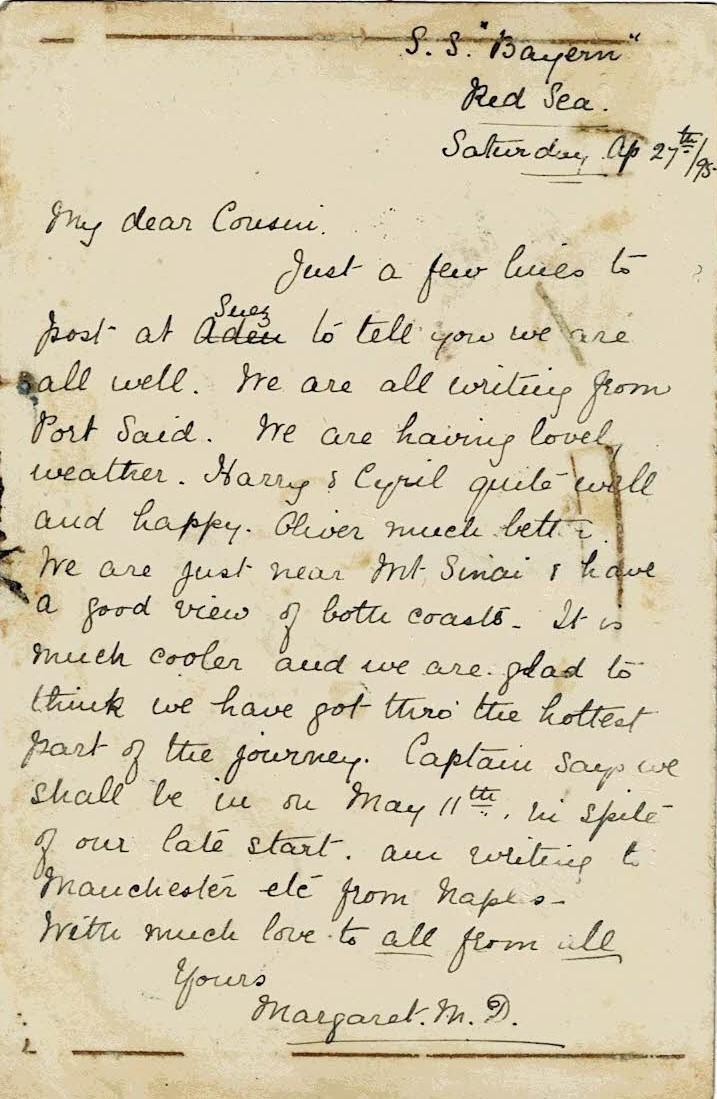 S. S. "Bayern"
Red Sea.
Saturday, Ap 27th/95
My dear Cousin.
Just a few lines to
Suez
post at Aden to tell you we are
all well. We are all writing from
Port Said. We are having lovely
weather. Harry & Cyril quite well
and happy. Oliver much better.
We are just near Mt Sinai & have
a good view of both coasts. It is
much cooler and we are glad to
think we have got thro' the hottest
part of the journey. Captain says we
shall be in on May 11th, in spite
of our late start. am writing to
Manchester etc from Naples-
With much love to all from all
Yours
Margaret. M. D.